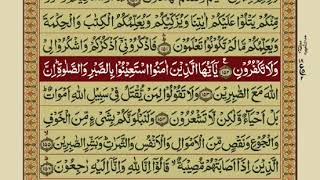 مِّنْكُمْ يَتْلُوْا عَلَيْكُمْ اٰيٰتِنَا وَيُزَكِّيْكُمْ وَيُعَلِّمُكُمُ الْكِتٰبَ وَالْحِكْمَةَ
وَيُعَلِّمُكُمْ مَّا لَمْ تَكُوْنُوْا تَعْلَمُوْنَ ۝۱۵۱ فَاذْكُرُوْنِيْٓ اَذْكُرْكُمْ وَاشْكُرُوْا لِيْ
وَلَا تَكْفُرُوْنِ ۝۱۵۲ يٰٓاَيُّهَا الَّذِيْنَ اٰمَنُوا اسْتَعِيْنُوْا بِالصَّبْرِ وَالصَّلٰوةِ اِنَّ
اللّٰهَ مَعَ الصّٰبِرِيْنَ ۝۱۵۳ وَلَا تَقُوْلُوْا لِمَنْ يُّقْتَلُ فِيْ سَبِيْلِ اللّٰهِ اَمْوَاتٌ
بَلْ اَحْيَآءٌ وَّلٰكِنْ لَّا تَشْعُرُوْنَ ۝۱۵۴ وَلَنَبْلُوَنَّكُمْ بِشَيْءٍ مِّنَ الْخَوْفِ
وَالْجُوْعِ وَنَقْصٍ مِّنَ الْاَمْوَالِ وَالْاَنْفُسِ وَالثَّمَرٰتِ وَبَشِّرِ الصّٰبِرِيْنَ ۝۱۵۵
الَّذِيْنَ اِذَآ اَصَابَتْهُمْ مُّصِيْبَةٌ قَالُوْٓا اِنَّا لِلّٰهِ وَاِنَّآ اِلَيْهِ رٰجِعُوْنَ ۝۱۵۶